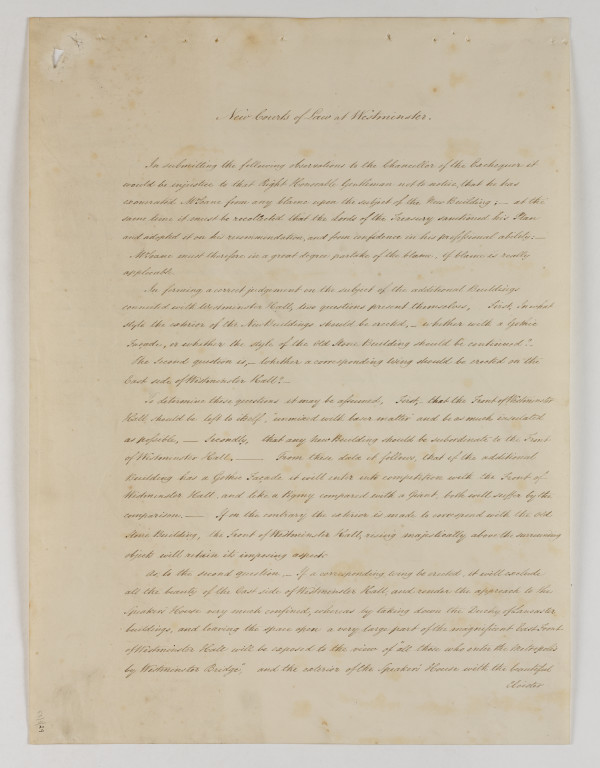 New Courts of Law at Westminster.
In submitting the following observations to the Chancellor of the Exchequer it
would be injustice to that Right Honorable Gentleman not to notice, that he has
exonerated Mr Soane from any blame upon the subject of the New Building; — at the
same time it must be recollected that the Lords of the Treasury sanctioned his Plan
and adopted it on his recommendation, and from confidence in his professional ability; —
Mr Soane must therefore in a great degree partake of the blame, if blame is really
applicable.
In forming a correct judgement on the subject of the additional Buildings
connected with Westminster Hall, two questions present themselves, First, In what
style the exterior of the New Buildings should be erected, — whether with a Gothic
Façade, or whether the style of the Old Stone Building should be continued?.
The Second question is, — Whether a corresponding Wing should be erected on the
East side of Westminster Hall? —
To determine these questions it may be assumed, First, that the Front of Westminster
Hall should be left to itself, "unmixed with baser matter" and be as much insulated
as possible, — Secondly, that any New Building should be subordinate to the Front
of Westminster Hall. — From these data it follows, that if the additional
Building has a Gothic Façade, it will enter into competition with the Front of
Westminster Hall, and like a Pigmy compared with a Giant, both will suffer by the
comparison. — If on the contrary the exterior is made to correspond with the old
Stone Building, the Front of Westminster Hall, rising majestically above the surrounding
objects will retain its imposing aspect.
As, to the second question, — If a corresponding wing be erected, it will exclude
all the beauty of the East side of Westminster Hall, and render the approach to the
Speakers House very much confined, whereas by taking down the Duchy of Lancaster
buildings, and leaving the space open a very large part of the magnificent East Front
of Westminster Hall will be exposed to the view of "all those who enter the Metropolis
by Westminster Bridge", and the exterior of the Speakers House with the beautiful
Cloister